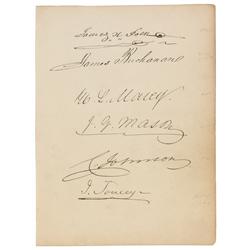 James K. Polk
James Buchanan
W. L. Marcy.
J. Y. Mason
C. Johnson
I. Toucey